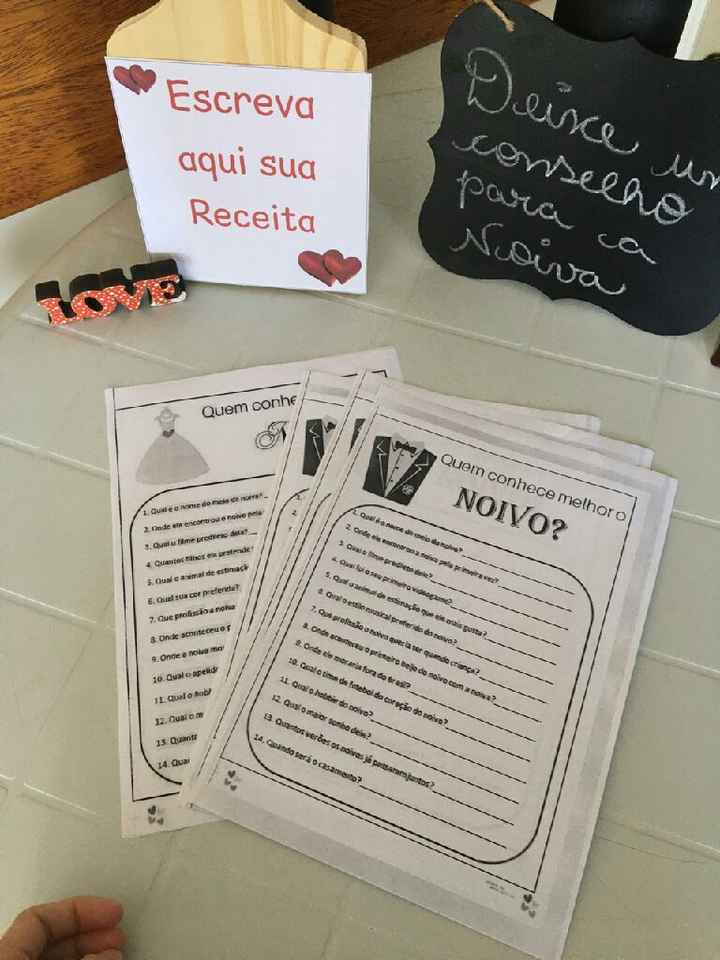 Escreva
aqui sua
Receita
Deixe um
conselho
para a
Noiva
LOVE
Quem conhe
1. Qual é o nome do meio da noiva?
2. Onde ela encontrou o noivo pela
3. Qual o filme predileto dela?
4. Quantos filhos ela pretende
5. Qual o animal de estimaçã
6. Qual sua cor preferida?
7. Que profissão a noiva
8. Onde aconteceu o p
9. Onde a noiva mo
10. Qual o apelido
11. Qual o hobb
12. Qual o m
13. Quanto
14. Qua
Quem conhece melhor o
NOIVO?
1. Qual é o nome do meio do noivo?
2. Onde ele encontrou a noiva pela primeira vez?
3. Qual o filme predileto dele?
4. Qual foi o seu primeiro videogame?
5. Qual o animal de estimação que ele mais gosta?
6. Qual o estilo musical preferido do noivo?
7. Que profissão o noivo queria ser quando criança?
8. Onde aconteceu o primeiro beijo do noivo com a noiva?
9. Onde ele moraria fora do Brasil?
10. Qual o time de futebol do coração do noivo?
11. Qual o hobbie do noivo?
12. Qual o maior sonho dele?
13. Quantos verões os noivos já passaram juntos?
14. Quando será o casamento?